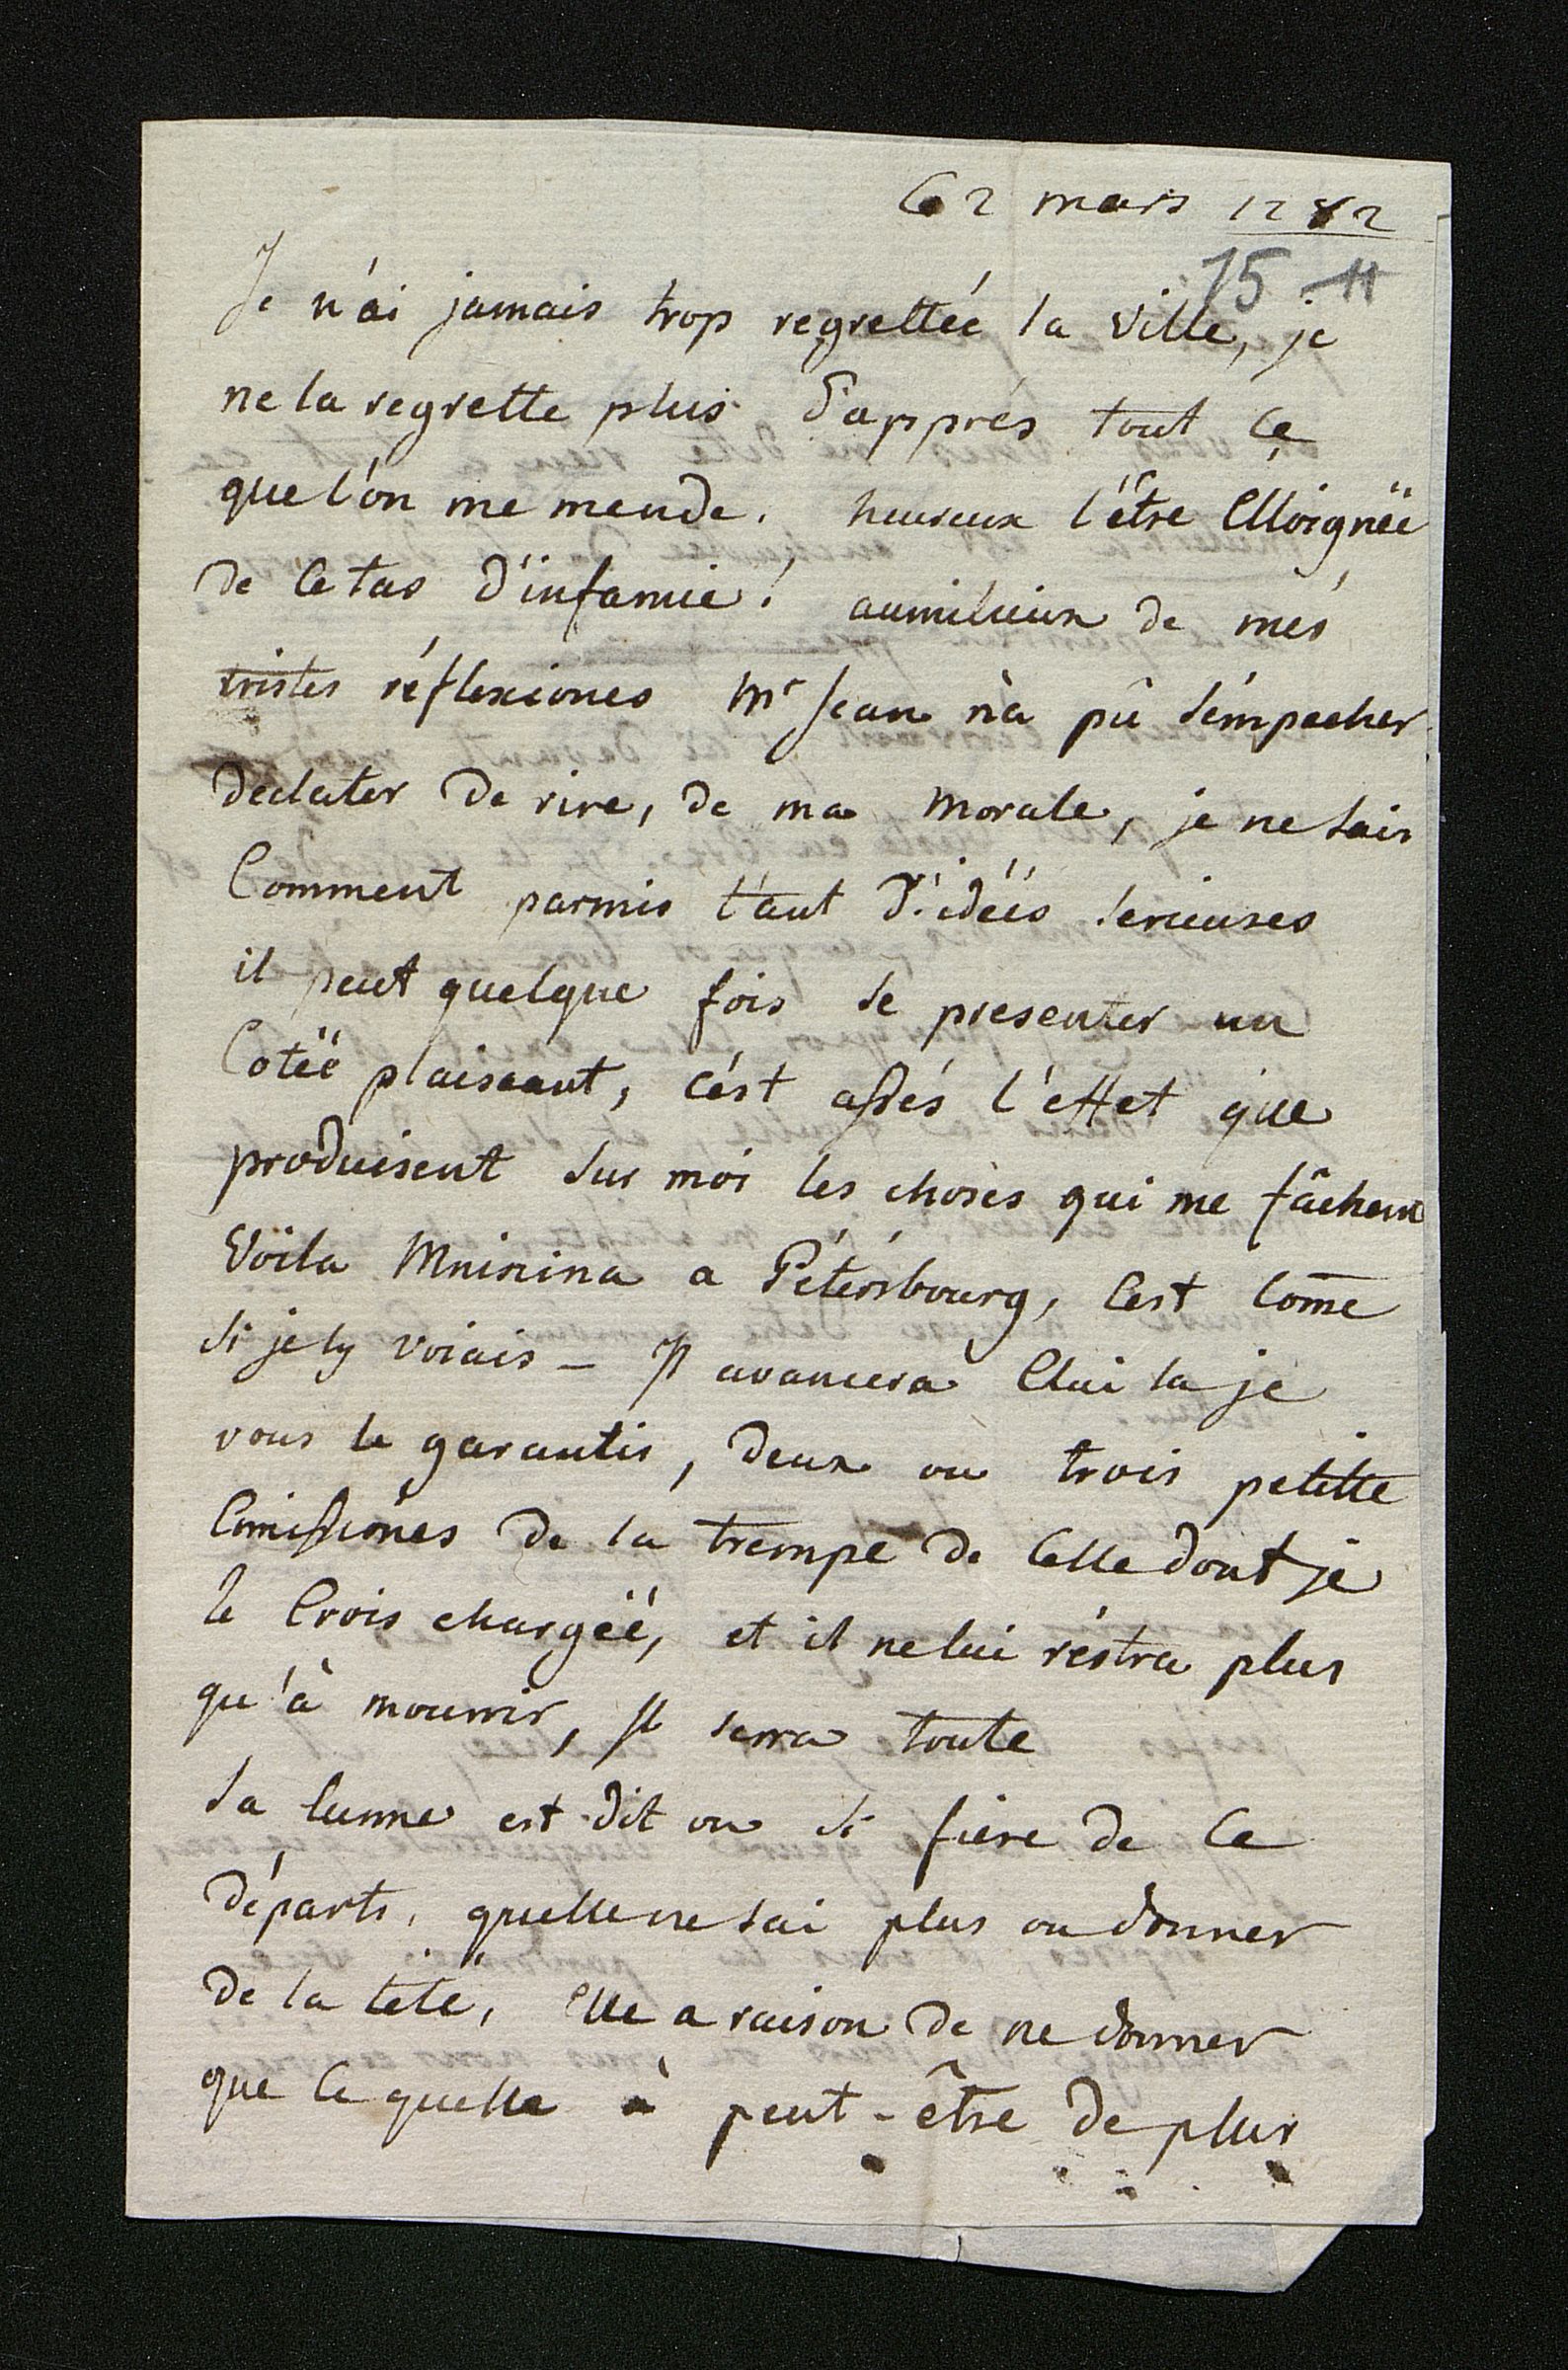 Ce 2 mars 1782
15 11
Je n'ai jamais trop regrettéé la ville, je
ne la regrette plus d'apprés tout ce
que l'on me mende. heureux l'être Elloignéé
de ce tas d'infamie! aumilieux de més
tristes réflexiones Mr Jean n'a pû s'émpecher
declater de rire, de ma morale, je ne sais
Comment parmis t'ant d'idéés serieuses
il peut quelque fois se presenter un
Cotéé plaiseant, cést assés l'effet que
produisent sur moi les choses qui me fâchent
Voila Mnisina a Pétérsbourg, Cest Come
si je ly voiais - Il avancera Clui la je
vous le garantis, deux ou trois petitte
Comissiones de la trempe de Celle dont je
le Crois chargéé, et il ne lui réstra plus
qu'à mourrir, Il serra toute
sa est dit on si fiere de ce
départs, quelle ne sai plus ou donner
de la tété, Elle a raison de ne donner
que ce quelle à peut-être de plus